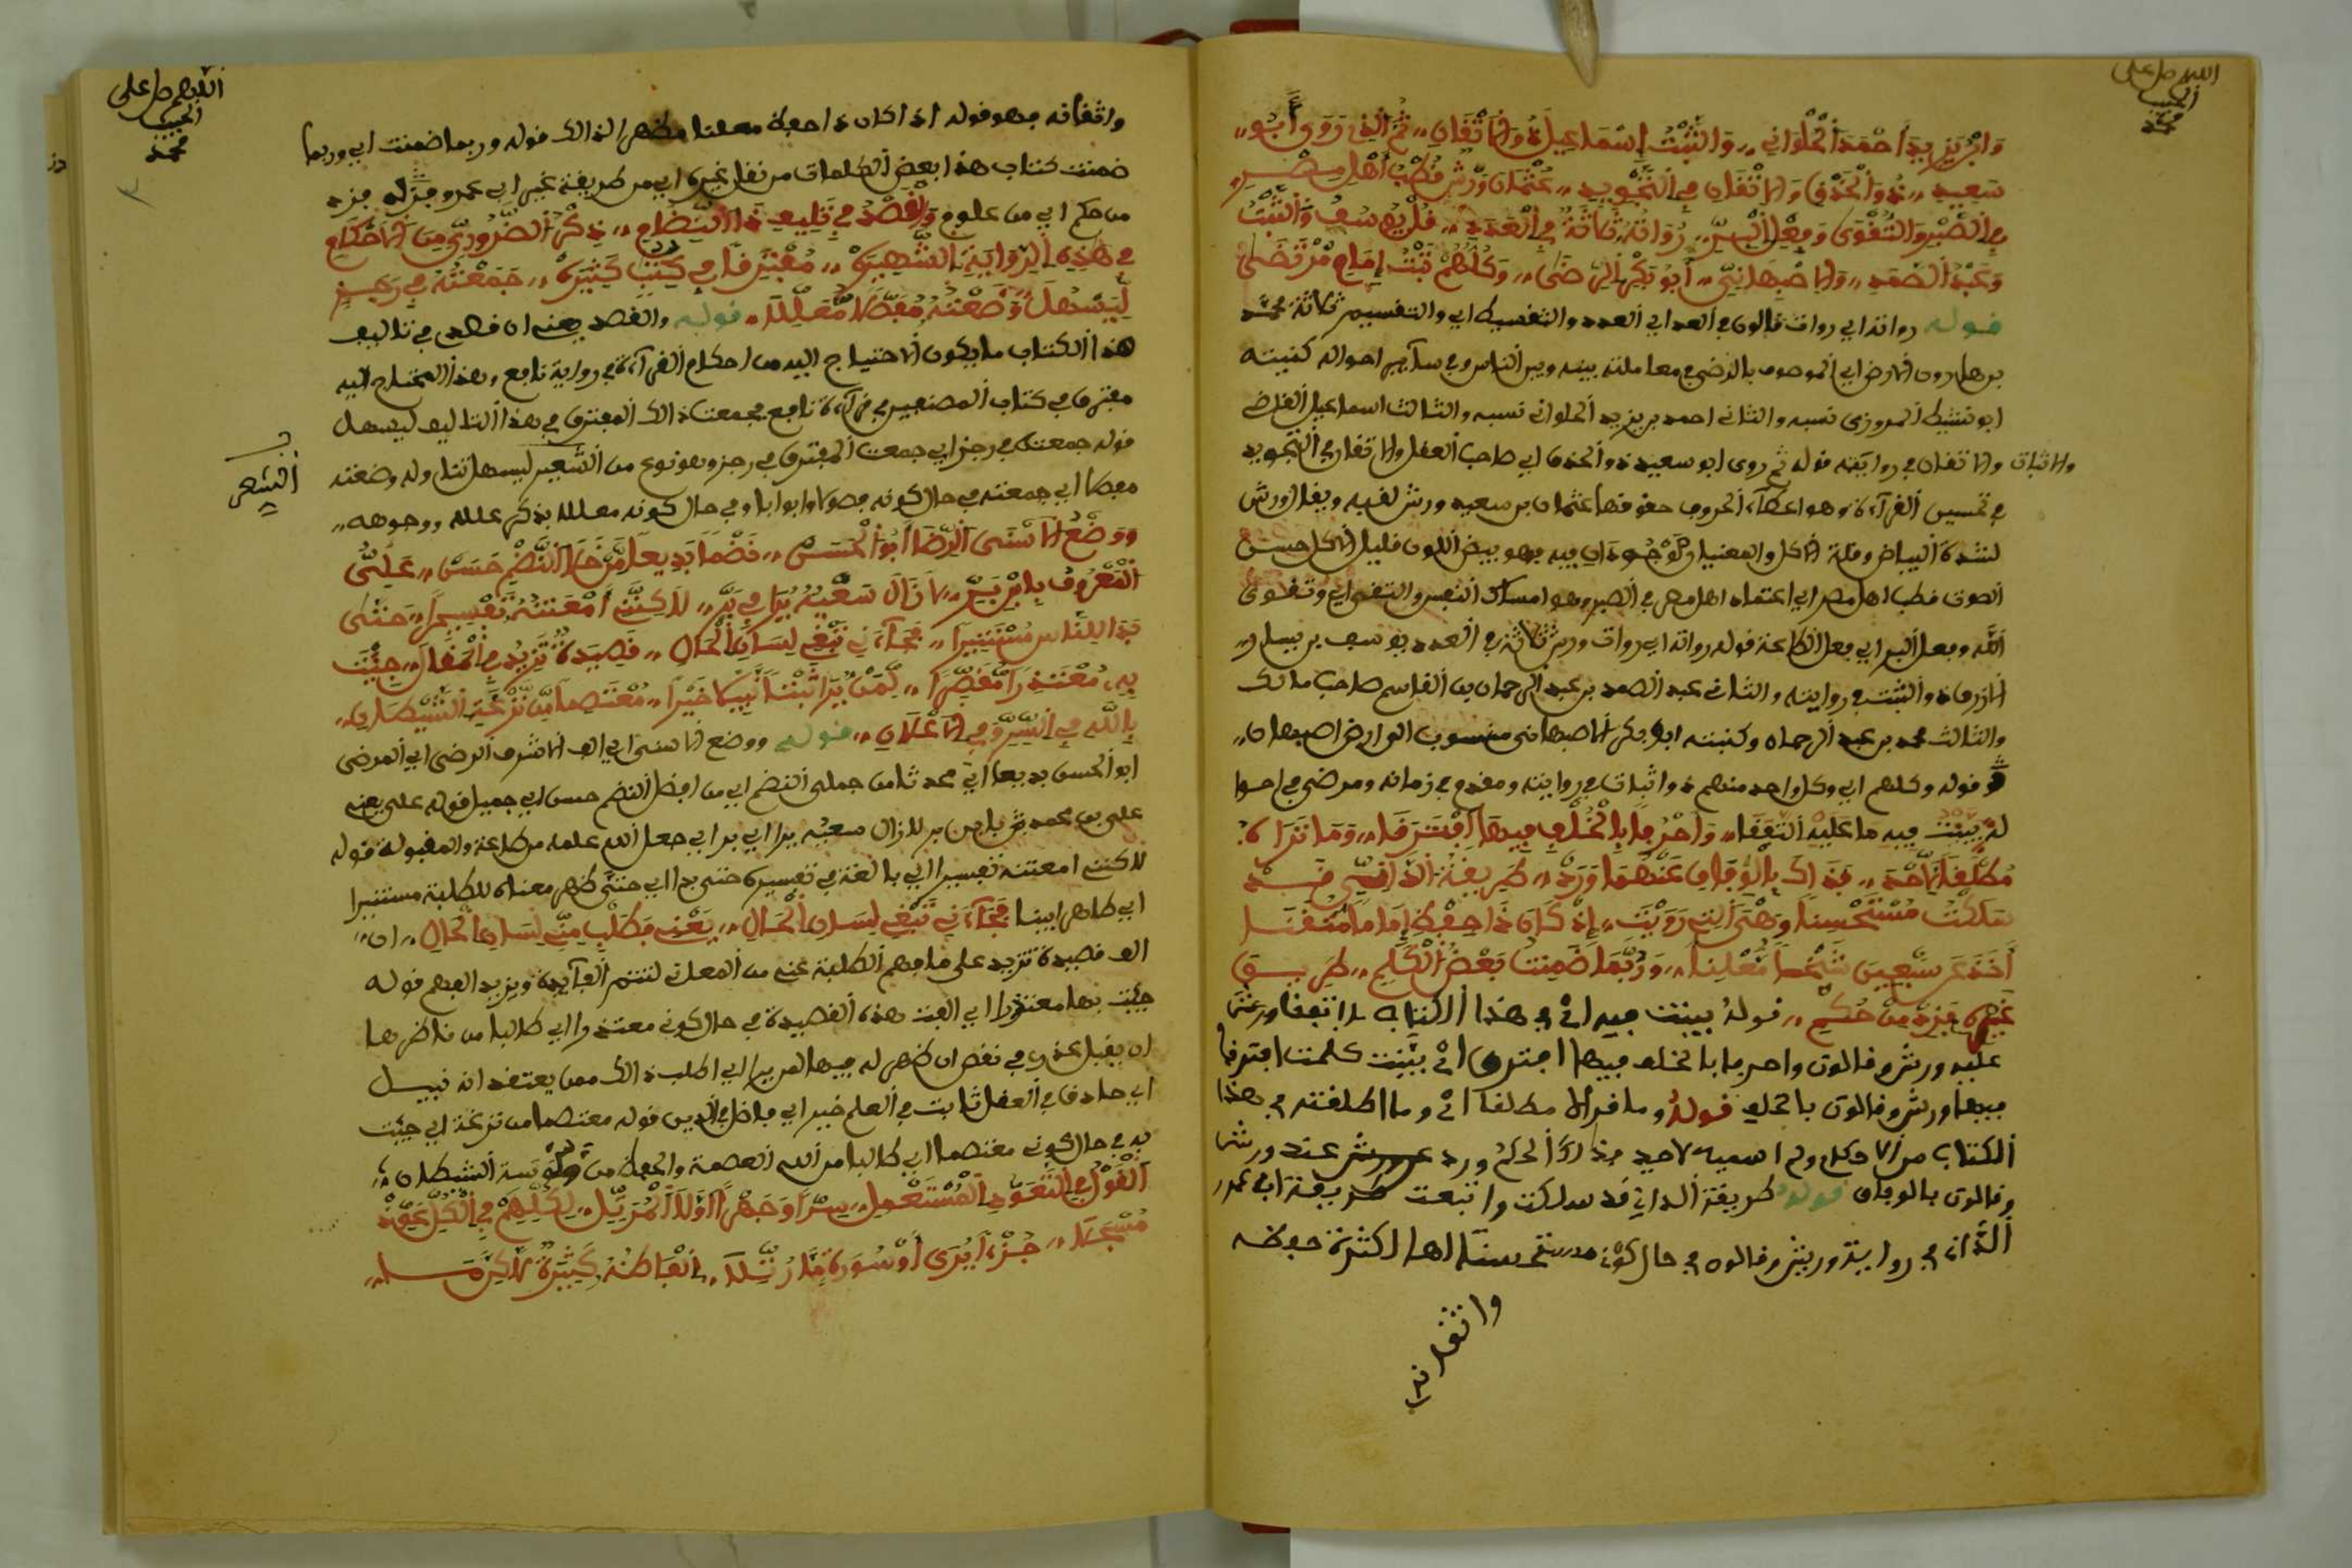 اللهم صل على
الحبيب
محمد
وابن يزيد أحمد الحلواني،، والثبت إسماعيل ذو الاتقان،، ثم الذي روى أبو،،
سعيد،، ذو الحذق والاتقان في التجويد،، عثمان ورش قطب أهل مصر،،
في الصبر والتقوى وفعل البر،، رواته ثلاثة في العدد،، فل يوسف والثبت
وعبد الصمد،، والاصبهاني،، أبو بكر الرضى،، وكلهم ثبت إمام مرتضى
قوله رواته أي روات قالون في العد أي العدد والتقسيم ثلاثة محمد
بن هارون الارض أي الموصوف بالرضى في معاملته بينه وبين الناس وفي سآير احواله كنيته
ابو نشيط المروزي نسبه والثاني احمد بن يزيد الحلواني نسبه والثالث اسماعيل القاض
والاثبات والاتقان في روايته قوله ثم روى ابو سعيد ذو الحذق اي صاحب العقل والاتقان في التجويد
في تحسين القرآءة وهو اعطآء الحروف حقوقها عثمان بن سعيد ورش لقبه ويقال ورش
لشدة البياض وقلة الاكل والمعنيان موجودان فيه فهو بيض اللون قليل الاكل حسن
الصوت قطب اهل مصر اي اعتماد اهل مصر في الصبر وهو امساك النفس والتقى اي وتقوى
الله وفعل البر اي فعل الطاعة قوله رواته اي روات ورش ثلاثة في العدد يوسف بن يسار،،
الازرق ذو الثبت في روايته والثاني عبد الصمد بن عبد الرحمان بن القاسم صاحب مالك
والثالث محمد بن عبد الرحمان وكنيته ابو بكر الاصبهاني منسوب الى ارض اصبهان،،
قوله وكلهم اي وكل واحد منهم ذو اثبات في روايته ومقدم في زمانه ومرضي في احوا
له بينت فيه ما عليه اتفقا،، واحرفا بالخلف فيها افترقا،، وما تراه
مطلقا لاحد،، فذاك بالوفاق عنهما ورد،، طريقة الداني قد
سلكت مستحسنا وهي التي رويت،، إذ كان ذا حفظ إماما متقنا
أخذ عن سبعين شيخا معلنا،، وربما ضمنت بعض الكلم،، طريق
غيره فزد من حكم،، قوله بينت فيه اي في هذا الكتاب ما اتفقا ورش
عليه ورش وقالون واحرفا بالخلف فيها افترقا اي بينت كلمت افترقا
فيها ورش وقالون بالخلف قوله وما تراه مطلقا اي وما اطلقته في هذا
الكتاب من الاحكام ولم اسميه لاحد فذاك الحكم ورد عن ورش عند ورش
وقالون بالوفاق قوله طريقة الداني قد سلكت واتبعت طريقة ابي عمرو
الداني في رواية ورش وقالون في حال كوني مستحسنا لها لكثرة حفظه
واتقانه
اللهم صل على
الحبيب
محمد
واتقانه فهو قوله اذ اكان ذا حفظ معلنا مظهر الذالك قوله وربما ضمنت اي وربما
ضمنت كتاب هذا بعض الكلمات من نقل غيره اي من طريقة غير ابي عمرو فزد
من حكم اي من علوم والقصد في تليف ذا النظام،، ذكر الضروري من الاحكام
في هذه الرواية الشهيرة،، مفترقا في كتب كثيرة،، جمعته في رجز
ليسهلا،، وضعته مفصلا معللا،، قوله والقصد يعني ان قصدي في تاليف
هذا الكتاب ما يكون الاحتياج اليه من احكام القرآءة في رواية نافع وهذا المحتاج اليه
مفترق في كتاب المصنفين في قرآءة نافع فجمعت ذالك المفترق في هذا التاليف ليسهل
قوله جمعته في رجز اي جمعت المفترق في رجز وهو نوع من الشعر ليسهل تناوله وضعته
الشعر
مفصلا اي جمعته في حال كونه فصولا وابوابا وفي حال كونه معللا بذكر علله ووجوهه،،
ووضع الاسنى الرضا أبو الحسن،، نظما بديعا من حلا النظم حسن،، علي
المعروف بابن بر،، لا زال سعيه يرا في بر،، لاكنني امعنته تفسيرا،، حتى
بدا للناس مستنيرا،، فجآءني تبغي لسان الحال،، قصيدة تزيد في المقال،، جئت
به معتذرا مقصرا،، لمن يرا ثبتا نبيلا خيرا،، معتصما من نزغة الشيطان،،
بالله في السر وفي الاعلان،، قوله ووضع الاسنى اي الف الاشرف الرضى اي المرضي
ابو الحسن بديعا اي محدثا من جملى النضم اي من افضل النضم حسن اي جميل قوله علي يعني
علي بن محمد بن بر لا زال سعيه يرا اي بر اي جعل الله علمه من طاعة والمقبولة قوله
لاكنني امعنته تفسيرا اي بالغة في تفسيره حتى بدا اي حتى ظهر معناه للطلبة مستنيرا
اي ظاهر ابينا فجآءني تبغي لسان الحال،، يعني فطلب مني لسان الحال،، ان
الف قصيدة تزيد على ما فهم الطلبة عنه من المعاني لتتم الفآيدة ويزيد الفهم قوله
جئت بها معتذرا اي الفت هذه القصيدة في حال كوني معتذرا اي طالبا من ناظرها
ان يقبل عذري في نقص ان ظهر له فيها لمن يرا اي اطلب ذالك ممن يعتقد انه نبيل
اي حاذق في العقل ثابت في العلم خير اي فاضل في الدين قوله معتصما من نزغة اي جئت
به في حال كوني معتصما اي طالبا من الله العصمة والحفظ من وسوسة الشيطان
القول في التعوذ المستعمل،، سرا وجهرا اولا المرتل،، لكلهم في الكل عقد
مسجلا،، جزءا يرى أو سورة قد رتلا،، الفاظه كثيرة لاكن